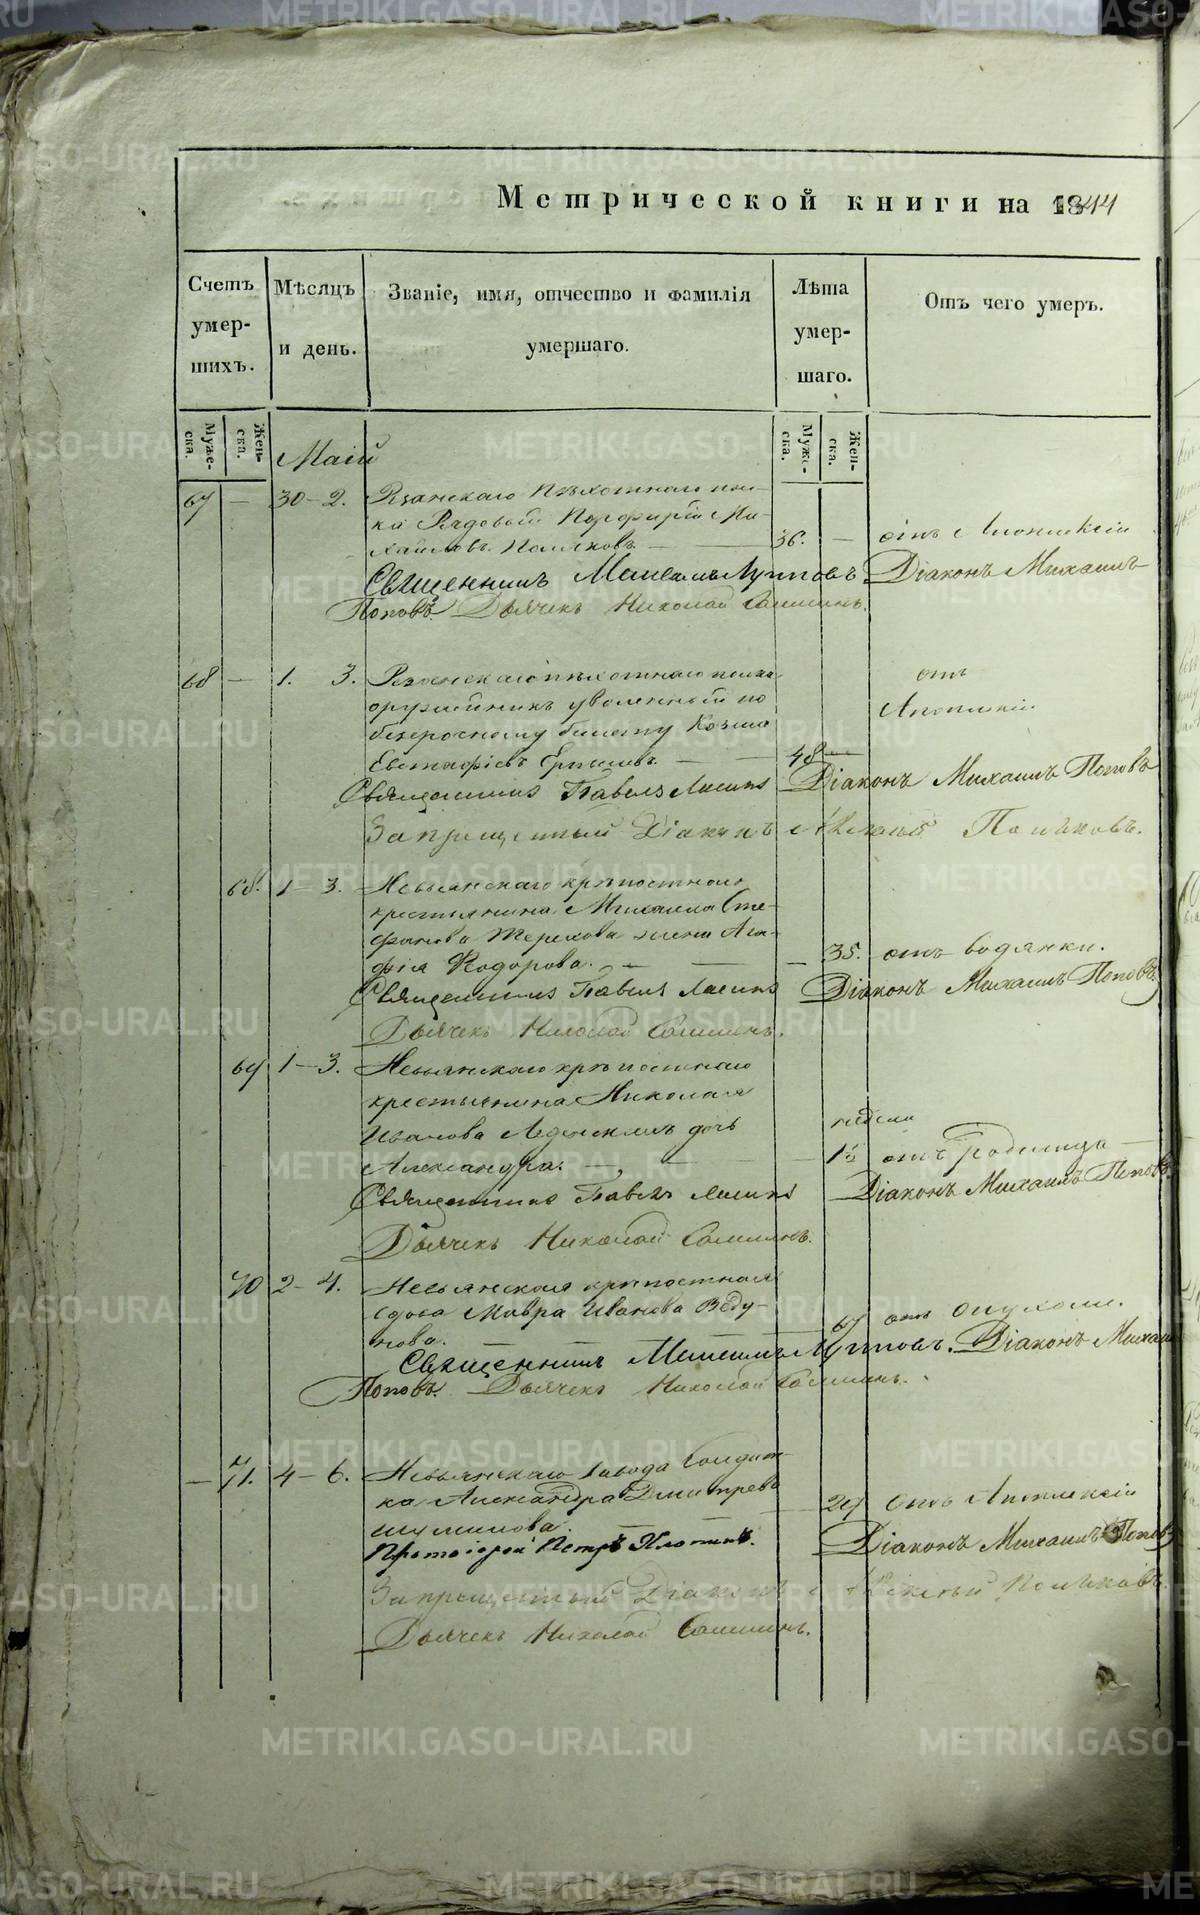 Метрической книги на 1844
Счетъ умер- шихъ.
Мѣсяцъ и день.
Званіе, имя, отчество и фамилія умершаго.
Лѣта умер- шаго.
Отъ чего умеръ.
Муже- ска.
Жен- ска.
Муже- ска.
Жен- ска.
Маій
67 — 30-2. Рязанскаго Пѣхотнаго пол-
ка Рядовый Порфирій Ми-
хайловъ Поляковъ — 36. — отъ Апоплексіи
Священникъ Діаконъ Михаилъ
Поповъ. Дьячекъ Николай
68 — 1. 3. Рязанскаго пѣхотнаго полка
оружейникъ уволенный по
безсрочному билету Козма
Евстафіевъ — 48 —
отъ
Апоплексіи
Священникъ Павелъ Діаконъ Михаилъ Поповъ
Запрещенный Діаконъ Алексѣй Поляковъ.
68. 1-3. Невьянскаго крѣпостнаго
крестьянина Михаила Сте-
фанова Терехова жена Ага-
фія Ѳедорова. — 35. отъ водянки.
Священникъ Павелъ Діаконъ Михаилъ Поповъ
Дьячекъ Николай
69 1-3. Невьянскаго крѣпостнаго
крестьянина Николая
Иванова дочь
Александра. —
недели
1½ отъ родимца —
Священникъ Павелъ Діаконъ Михаилъ Поповъ
Дьячекъ Николай
70 2-4. Невьянская крѣпостная
вдова Мавра Иванова Веду-
нова. — 67 отъ опухоли.
Священникъ Діаконъ Михаилъ
Поповъ. Дьячекъ Николай
— 71. 4-6. Невьянскаго завода Солдат-
ка Александра Дмитрева
— 29 отъ Апоплексіи
Протоіерей Петръ Діаконъ Михаилъ Поповъ
Запрещенный Діаконъ Алексѣй Поляковъ.
Дьячекъ Николай
METRIKI.GASO-URAL.RU